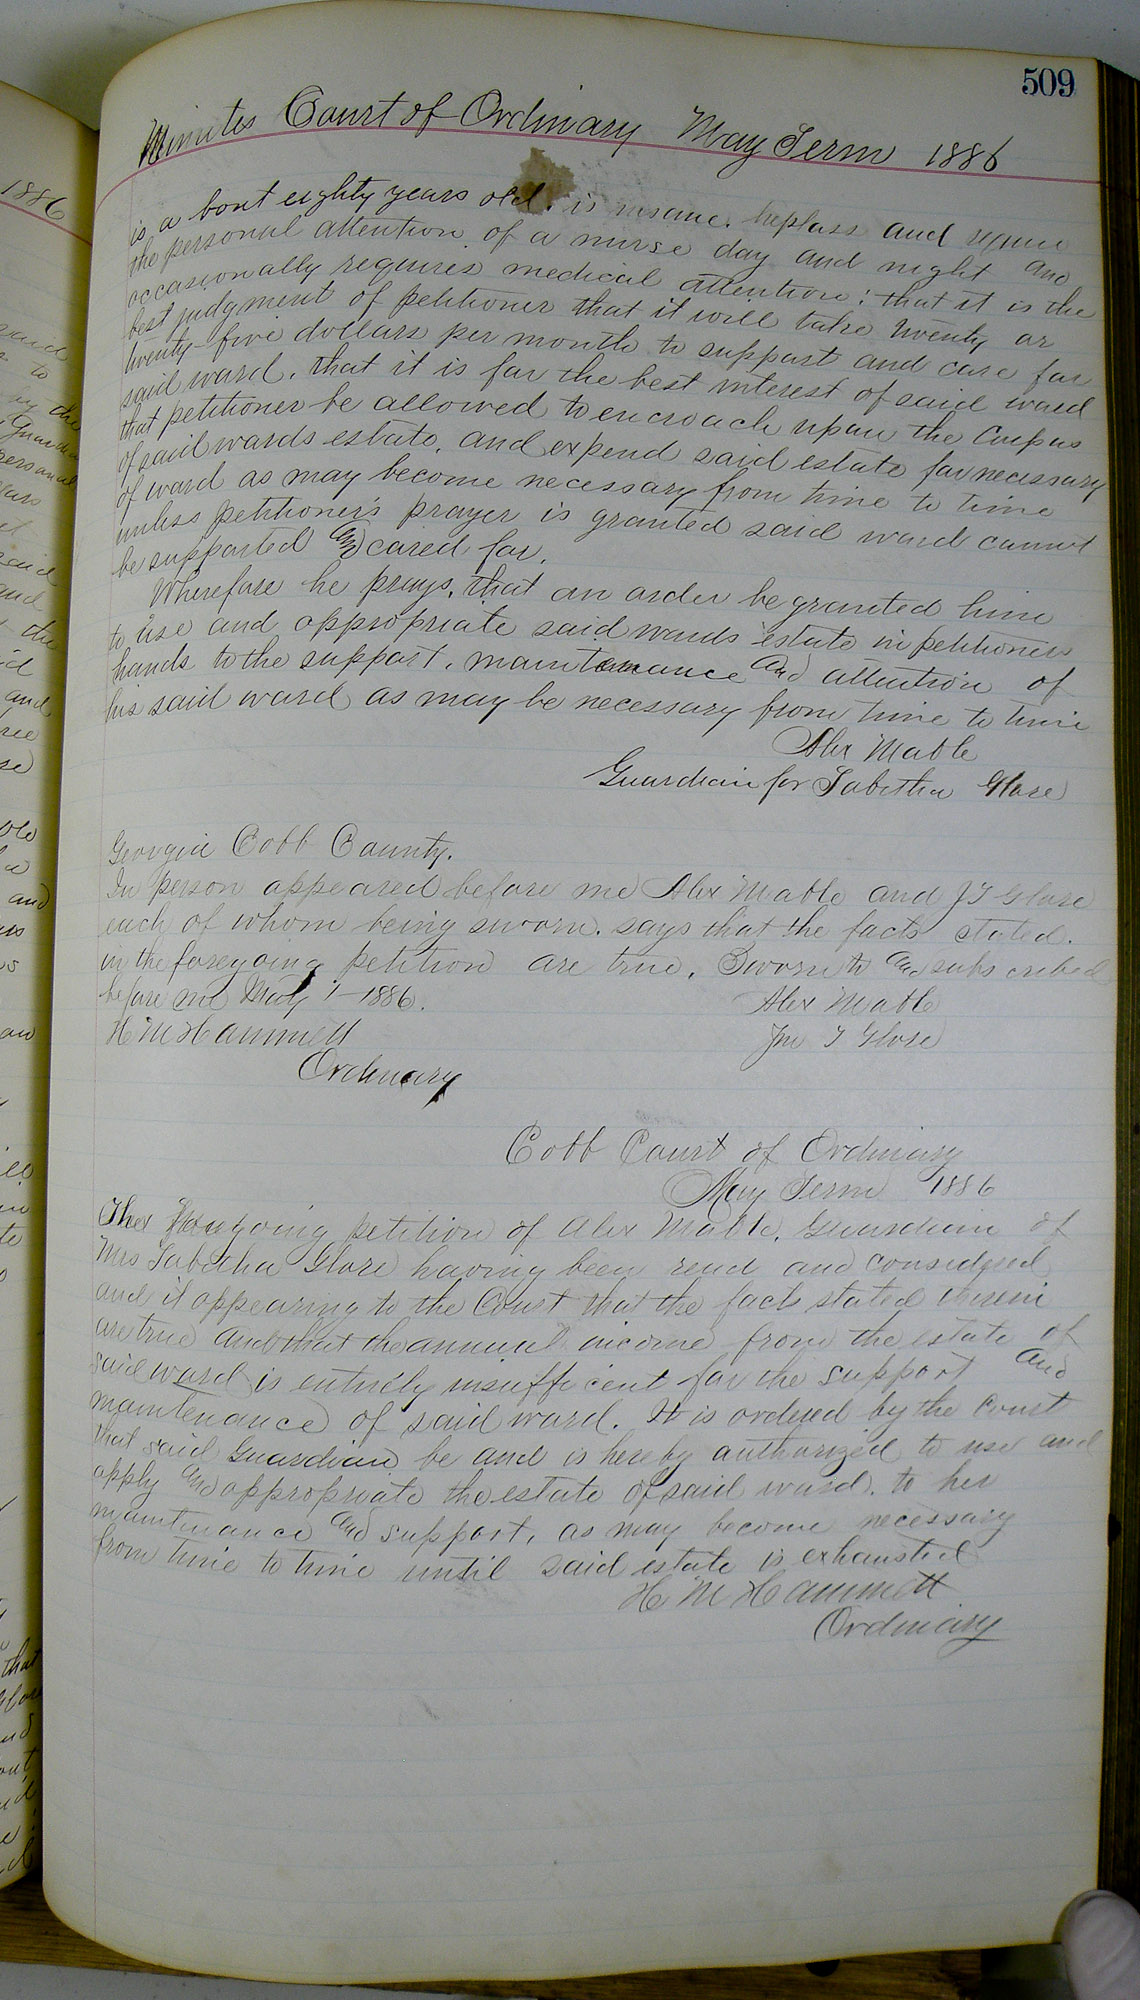 509
Minutes Court of Ordinary May Term 1886
is a bout eighty years old. is insane. helpless and require
the personal attention of a nurse day and night and
occasionally requires medical attention; that it is the
best judgment of petitioner that it will take twenty or
twenty five dollars per month to support and care for
said ward. that it is for the best interest of said ward
that petitioner be allowed to encroach upon the Corpus
of said wards estate. and expend said estate for necessary
of ward as may become necessary from time to time
unless petitioner's prayer is granted said ward cannot
be supported and cared for.
Wherefore he prays. that an order be granted him
to use and appropriate said wards estate in petitioners
hands to the support. maintenance and attention of
his said ward as may be necessary from time to time
Alex Mable
Guardian for Tabitha Glore
Georgia Cobb County.
In person appeared before me Alex Mable and J T Glore
each of whom being sworn. says that the facts stated.
in the foregoing petition are true. Sworn to and subscribed
before me May 1 - 1886.
Alex Mable
H M Hammett
Jno T Glore
Ordinary
Cobb Court of Ordinary
May Term 1886
The foregoing petition of Alex Mable. Guardian of
Mrs Tabitha Glore having been read and considered
and it appearing to the Court that the facts stated therein
are true and that the annual income from the estate of
said ward is entirely insufficient for the support and
maintenance of said ward. It is ordered by the Court
that said Guardian be and is hereby authorized to use and
apply and appropriate the estate of said ward. to her
maintenance and support. as may become necessary
from time to time until said estate is exhausted
H M Hammett
Ordinary
1886